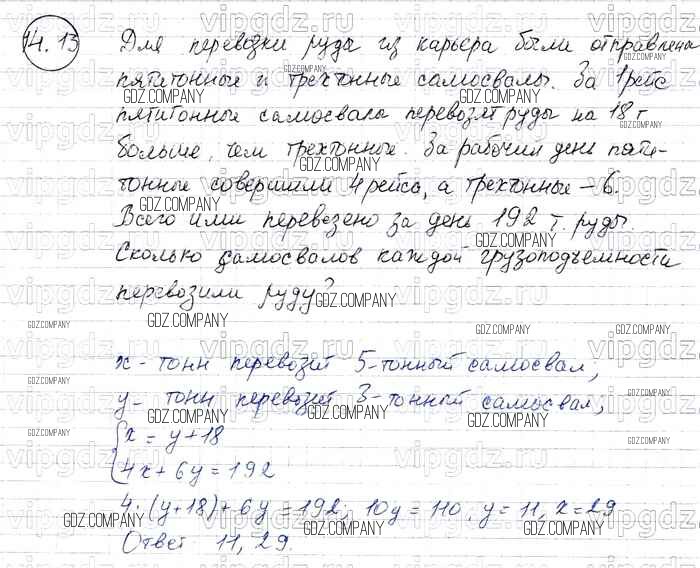 14.13 Для перевозки руды из карьера были отправлены
пятитонные и трехтонные самосвалы. За 1 рейс
пятитонные самосвалы перевозят руды на 18 т
больше, чем трехтонные. За рабочий день пяти-
тонные совершили 4 рейса, а трехтонные – 6.
Всего ими перевезено за день 192 т. руды.
Сколько самосвалов каждой грузоподъемности
перевозили руду?
x - тонн перевозит 5-тонный самосвал;
y - тонн перевозит 3-тонный самосвал;
x = y + 18
4x + 6y = 192
4·(y+18) + 6y = 192; 10y = 110, y = 11, x = 29
Ответ 11, 29.
vipgdz.ru
GDZ.COMPANY